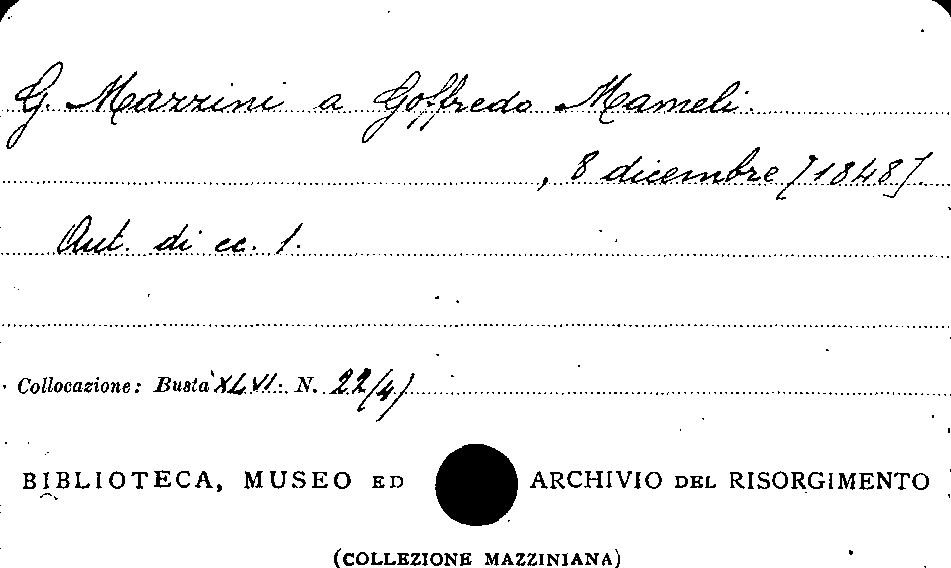 G. Mazzini a Goffredo Mameli.
, 8 dicembre [1848].
Aut. di cc. 1.
Collocazione: Busta XLVI. N. 22/4)
BIBLIOTECA, MUSEO ED ARCHIVIO DEL RISORGIMENTO
(COLLEZIONE MAZZINIANA)